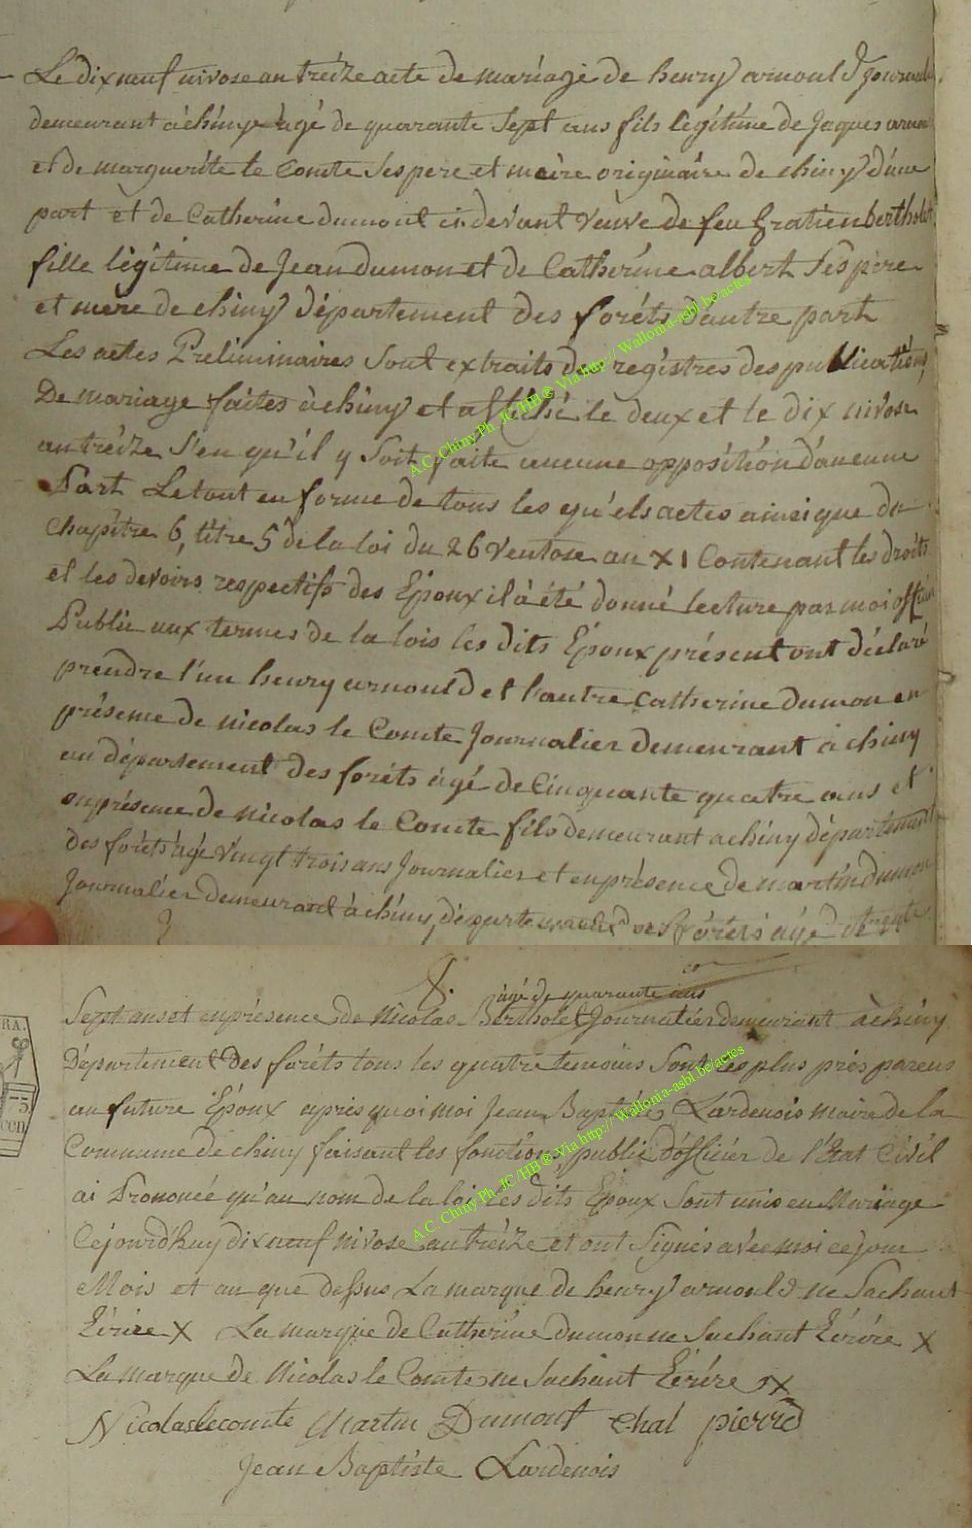 Le dix neuf nivose an treize acte de mariage de henry arnould journalier
demeurant à chiny âgé de quarante Sept ans fils légitime de Jaques arnould
et de marguerite le Comte Ses pere et maire originaire de chiny d'une
part et de Catherine dumont ci devant veuve de feu gratien bertholet
fille légitime de Jean dumon et de Catherine albert Ses père
et mere de chiny département des forêts d'autre part
Les actes Preliminaires Sont extraits des registres des publications
De mariage faites à chiny et affiché le deux et le dix nivose
an treize S'en qu'il y Soit faite aucune opposition d'aucune
Part Le tout en forme de tous les qu'els actes ainsi que du
Chapître 6, titre 5 de la loi du 26 Ventose an XI Contenant les droits
et les devoirs respectifs des Epoux il à été donné lecture par moi officier
Public aux termes de la lois les dits Epoux présent ont déclaré
prendre l'un henry arnould et l'autre Catherine dumon en
présense de Nicolas le Comte Journalier demeurant à chiny
au département des forêts âgé de Cinquante quatre ans et
en présence de Nicolas le Comte fils demeurant a chiny département
des forêts âgé vingt trois ans Journalier et en présence de martin dumon
Journalier demeurant à chiny, département des forêts âgé de trente
âgé de quarante ans
Sept ans et en présence de Nicolas Bertholet Journalier demeurant à chiny
Département des forêts tous les quatre temoins Sont les plus près parens
au future Epoux après quoi moi Jean Baptiste Lardenois maire de la
Commune de chiny faisant les fonctions public d'officier de l'Etat Civil
ai Prononcé qu'au nom de la loi les dits Epoux Sont unis en Mariage
Cejourd'huy dix neuf nivose an treize et ont Signés avec moi ce jour
Mois et an que dessus La marque de henry arnould ne Sachant
Ecrire X La marque de Catherine dumon ne Sachant Ecrire X
La marque de Nicolas le Comte ne Sachant Ecrire X
Nicolas lecomte Martin Dumont Chal pierre
Jean Baptiste Lardenois
RA.
75.
cen
A.C. Chiny Ph. JC/HB @ Via http:// Wallonia-asbl.be/actes
A.C. Chiny Ph. JC/HB @ Via http:// Wallonia-asbl.be/actes